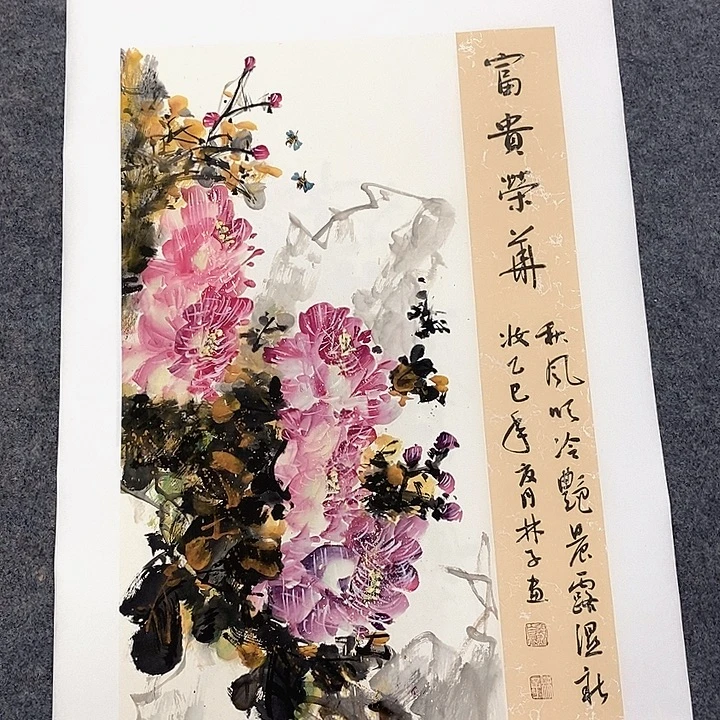 富貴榮華
秋風吹冷艷晨露湿新
妆乙巳年夏月林子画